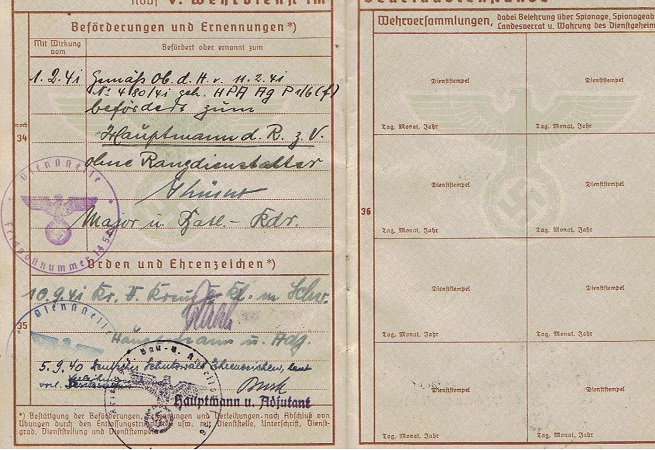 Beförderungen und Ernennungen*)
Mit Wirkung vom
Befördert oder ernannt zum
34
1.2.41 Gemäß Ob. d. H. v. 11.2.41
N° 4180/41 geh. HPA Ag P 1/6 (f)
befördert zum
Hauptmann d. R. z. V.
ohne Rangdienstalter
Major u. Batl.-Kdr.
Dienststelle
Feldpostnummer
Orden und Ehrenzeichen*)
35
10.9.41 Kr. V. Kreuz 2. Kl. m. Schw.
Hauptmann u. Adj.
Dienststelle
5.9.40 Deutsches Schutzwall Ehrenzeichen, laut
vorl.
Hauptmann u. Adjutant
*) Bestätigung der Beförderungen, Ernennungen und Verleihungen nach Abschluß von
Übungen durch den Entlassungstruppenteil usw. mit Dienststelle, Unterschrift, Dienst-
grad, Dienststellung und Dienststempel.
Wehrversammlungen, dabei Belehrung über Spionage, Spionageab
Landesverrat u. Wahrung des Dienstgeheim
36
Dienststempel Dienststempel
Tag, Monat, Jahr Tag, Monat, Jahr
Dienststempel Dienststempel
Tag, Monat, Jahr Tag, Monat, Jahr
Dienststempel Dienststempel
Tag, Monat, Jahr Tag, Monat, Jahr
Dienststempel Dienststempel
Tag, Monat, Jahr Tag, Monat, Jahr